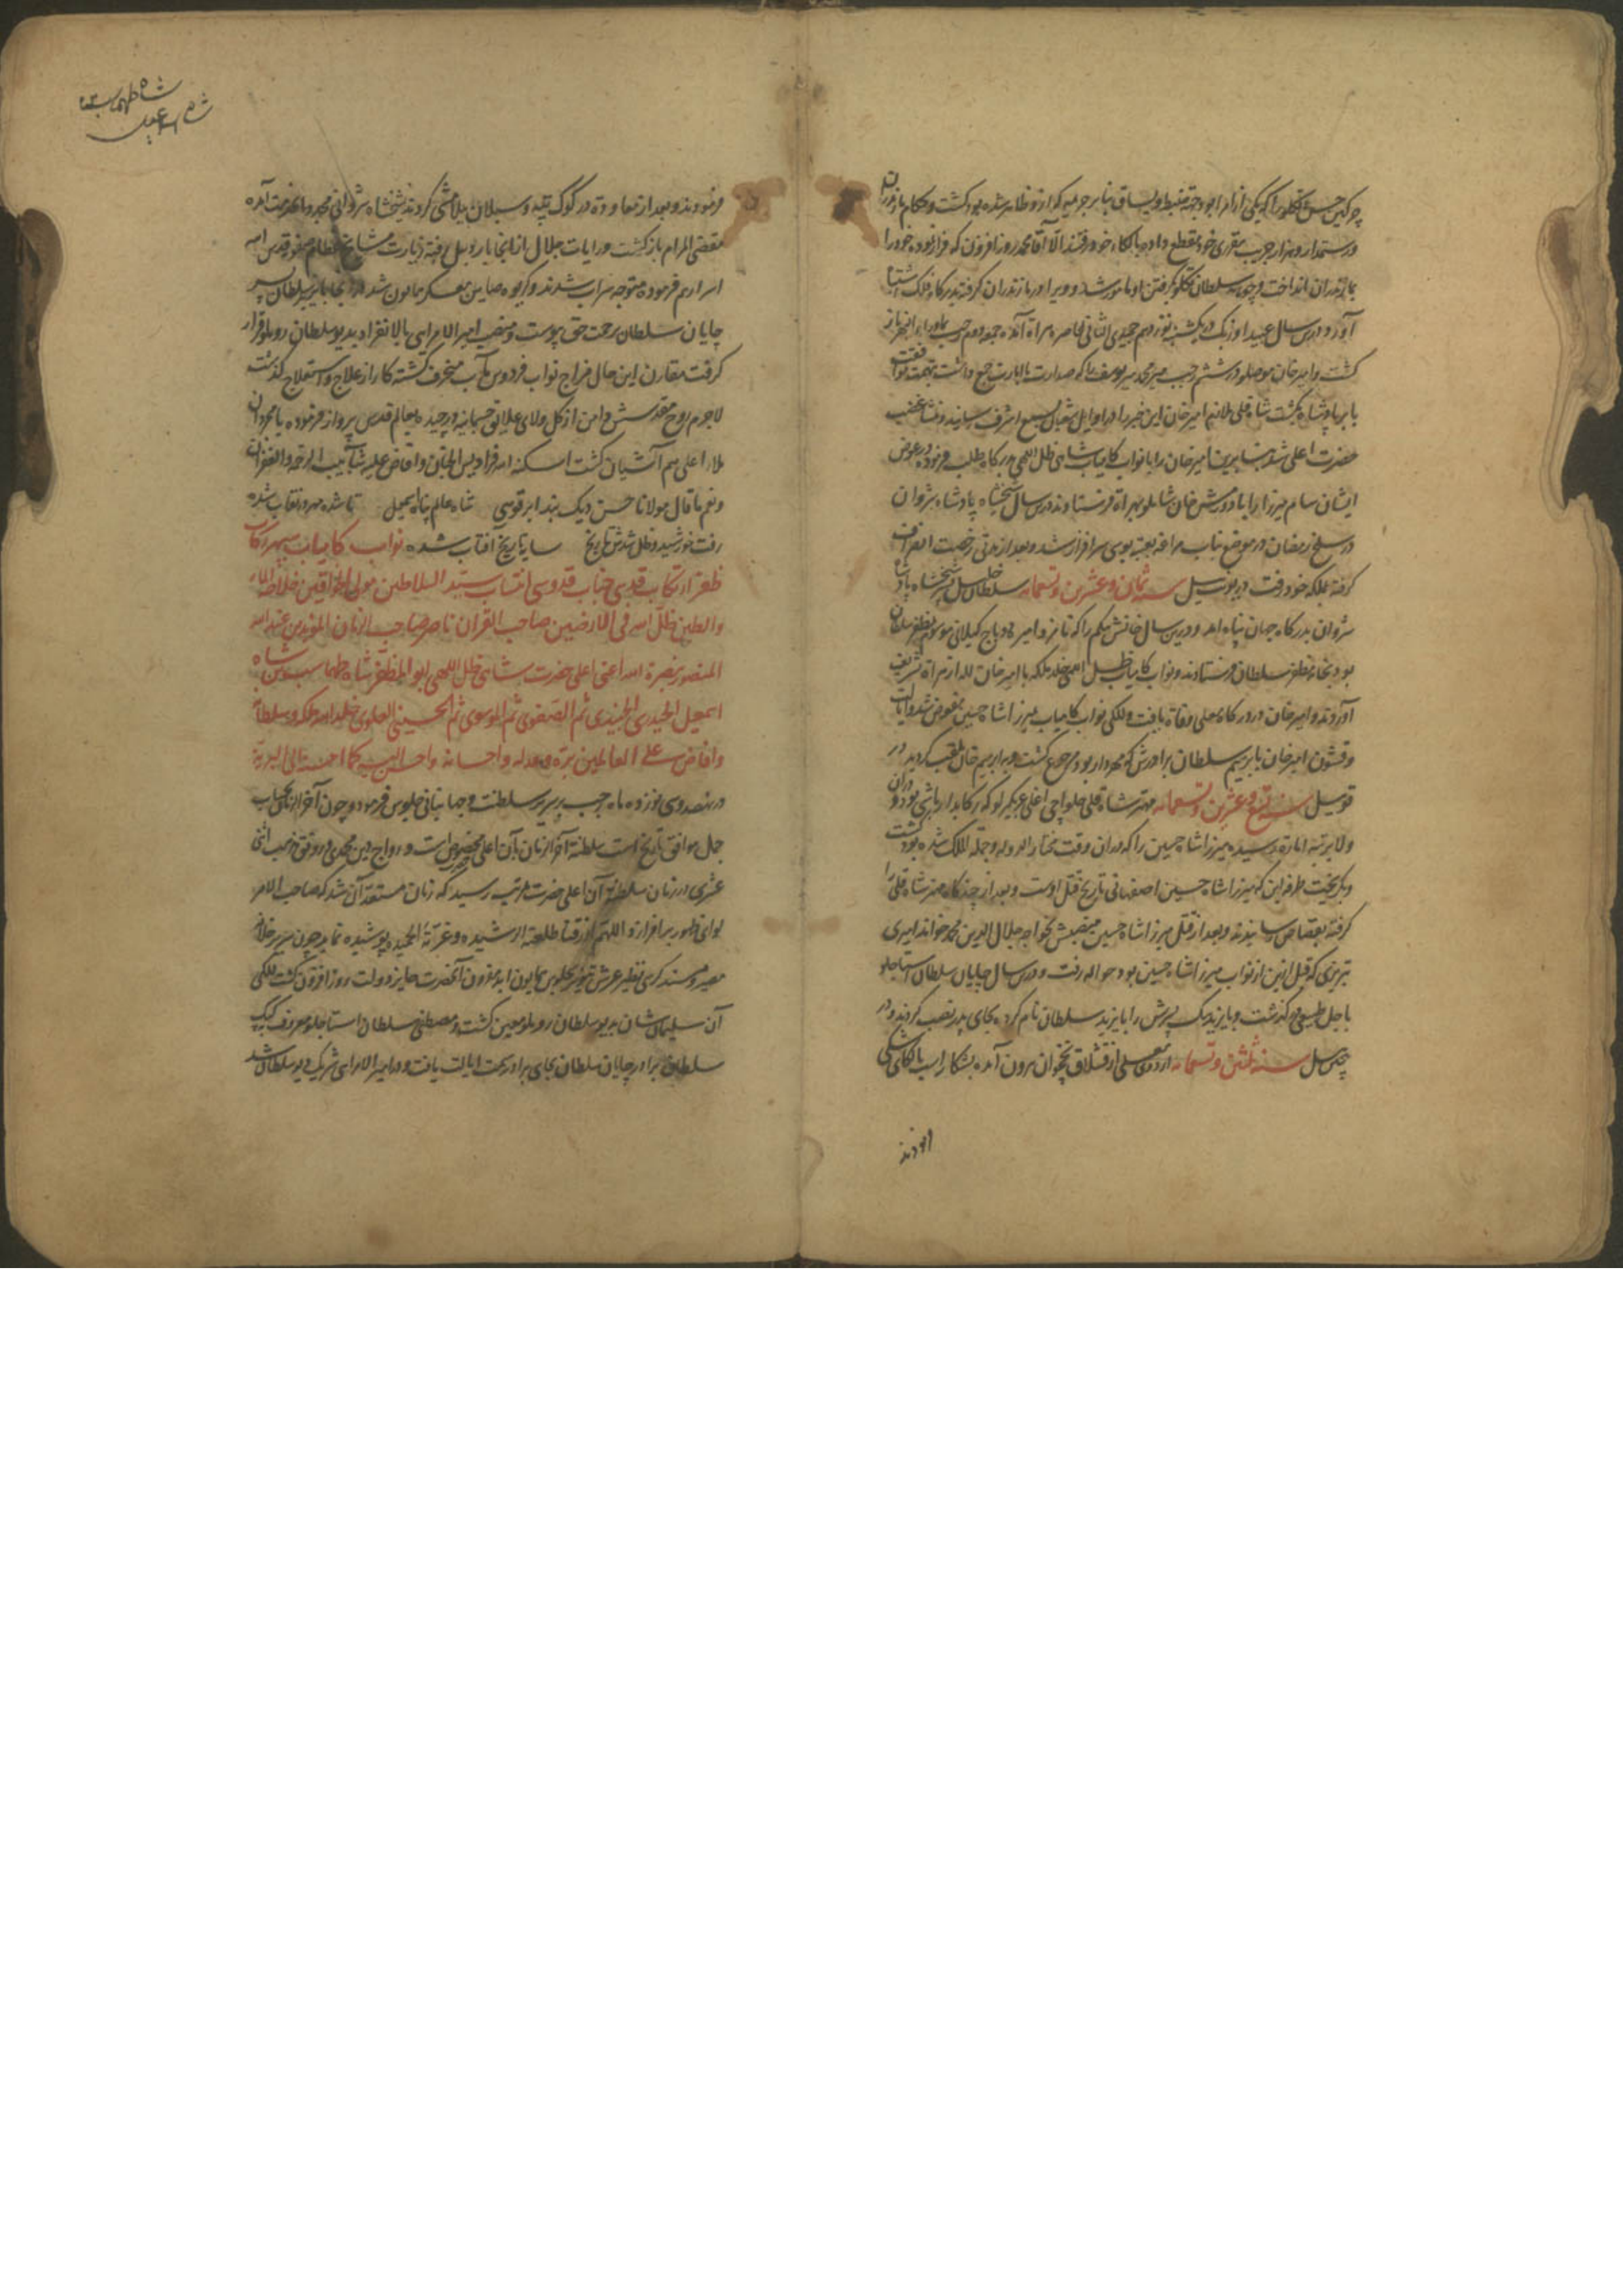 چرکین حسن تکلو را که یکی از امرا بود جهة ضبط و یساق بنابر جریمه که ازو ظاهر شده بود کشت و حکام مازندران
و رستمدار و هزار جریب مقرری خود مقطع داده باالکاء خود رفتند الا آقا محمد روزافزون که فرار نموده خود را
بمازندران انداخت و جوهه سلطان تکلو بگرفتن او مامور شد و ویرا در مازندران گرفته بدرگاه فلک اشتباه
آورد و درین سال عبید اوزبک در یکشنبه نوزدهم جمیدی الثانی محاصره هراة آمده جمعه دوم رجب بماوراء النهر باز
کشت و امیر خان موصلو در ششم رجب میر محمد میر یوسف را که صدارت با امارت جمع داشت بتهمت موافقت
بابر پادشاه بکشت شاه قلی ملازم امیرخان این خبر را در اوایل شعبان بسمع اشرف رسانید و منشا غضب
حضرت اعلی شد بنابرین امیر خان را با نواب کامیاب شاهی ظل اللهی بدرگاه طلب فرموده در عوض
ایشان سام میرزا را با دورمش خان شاملو بهراة فرستادند و درین سال شیخشاه پادشاه شروان
در سلخ رمضان در موضع بناب مراغه بعتبه بوسی سرافراز شد و بعد از مدتی رخصت انصراف
گرفته بملکه خود رفت در یونت ئیل سنه ثمان و عشرین و تسعمائه سلطان خلیل پسر شیخشاه پادشاه
شروان بدرگاه جهان پناه آمد و درین سال خانش بیکم را که نامزد امیره دوباج کیلانی موسوم بمظفر سلطان
بود بخانه مظفر سلطان فرستادند و نواب کامیاب ظل اللهی خلد ملکه با امیر خان لله از هراة تشریف
آوردند و امیرخان در درگاه معلی وفاة یافت و للکی نواب کامیاب بمیرزا شاه حسین مفوض شد و ایالت
و قشون امیرخان بابرهیم سلطان برادرش که مهردار بود مرجوع گشت و بابراهیم خان ملقب گردید در
قوی ئیل سنه تسع و عشرین و تسعمائه مهتر شاه قلی حلواچی اغلی عربکیرلو که رکابدار باشی بود و دران
ولا برتبه امارة رسیده میرزا شاه حسین را که دران وقت مختار الدوله و جملة الملک شده بود کشت
و بگریخت طرفه این که میرزا شاه حسین اصفهانی تاریخ قتل اوست و بعد از چندگاه مهتر شاه قلی را
گرفته بقصاص رسانیدند و بعد از قتل میرزا شاه حسین منصبش بخواجه جلال الدین محمد خواند امیری
تبریزی که قبل ازین از نواب میرزا شاه حسین بود حواله رفت و درین سال چایان سلطان استاجلو
باجل طبیعی درگذشت و بایزید بیک پسرش را بایزید سلطان نام کرده بجای پدر نصب کردند و در
پیچی ئیل سنه ثلثین و تسعمائه اردوی معلی از قشلاق نخجوان برون آمده بشکار اسب باالکای شکی
شاه طهماسب
شاه اسمعیل
فرمودند و بعد از معاودة در کوک تپه و سبلان ییلامیشی کردند شیخشاه شروانی مجددا بخدمت آمده
مقضی المرام بازگشت و رایات جلال از انجا باردبیل رفته زیارت مشایخ عظام صفویه قدس الله
اسرارهم فرموده متوجه سراب شدند و کریوه صاین معسکر همایون شد در انجا بایزید سلطان پسر
چایان سلطان برحمت حق پیوست و منصب امیر الامرایی بالانفراد بدیو سلطان روملو قرار
گرفت مقارن این حال مزاج نواب فردوس مآب منحرف گشته کار از علاج و استعلاج گذشت
لاجرم روح مقدسش دامن از کل ولای علایق جسمانیه ورچیده بعالم قدس پرواز فرموده با مجردان
ملاء اعلی هم آشیان گشت اسکنه الله فرادیس الجنان و افاض علیه شآبیب الرحمة و الغفران
و نعم ما قال مولانا حسن دیک بند ابرقوهی شاه عالم پناه اسمعیل تا شده مهر در نقاب شده
رفت خورشید و ظل شدش تاریخ سایه تاریخ افتاب شده نواب کامیاب سپهر رکاب
ظفر ارتکاب قدسی جناب قدوسی انتساب سید السلاطین مولی الخواقین خلاصة الماء
و الطین ظل الله فی الارضین صاحب القران ناصر صاحب الزمان المؤید من عند الله
المنصور بنصرة الله اعنی اعلی حضرت شاهی ظل اللهی ابو المظفر شاه طهماسب بن شاه
اسمعیل الحیدری الجنیدی ثم الصفوی ثم الموسوی ثم الحسینی العلوی خلد الله ملکه و سلطانه
و افاض علی العالمین بره و عدله و احسانه و احسن الیه کما احسن الی البریة
در نهصد و سی نوزده ماه رجب بر سریر سلطنت و جهانبانی جلوس فرمود و چون آخر الزمان بحساب
جمل موافق تاریخ است سلطنة آخر الزمان بآن اعلی حضرت مخصوص است و رواج دین محمدی و رونق مذهب اثنی
عشری در زمان سلطنة آن اعلی حضرت بمرتبه رسید که زمان مستعد آن شد که صاحب الامر
لوای ظهور برافرازد اللهم ارزقنا طلعته الرشیده و غرته الحمیده پوشیده نماند چون سریر خلافت
مصیر و مسند کرسی نظیر عرش تنویر بجلوس همایون ابد مقرون آنحضرت حایز دولت روز افزون گشت للکی
آن سلیمان شان بدیو سلطان روملو معین گشت و مصطفی سلطان استاجلو معروف بکپک
سلطان برادر چایان سلطان بجای برادر سمت ایالت یافت و در امیر الامرایی شریک دیو سلطان شد